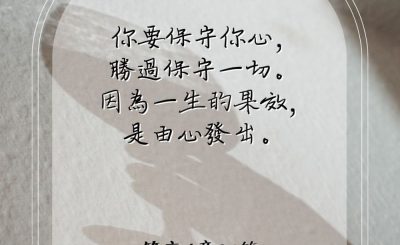 你要保守你心，
勝過保守一切。
因為一生的果效，
是由心發出。